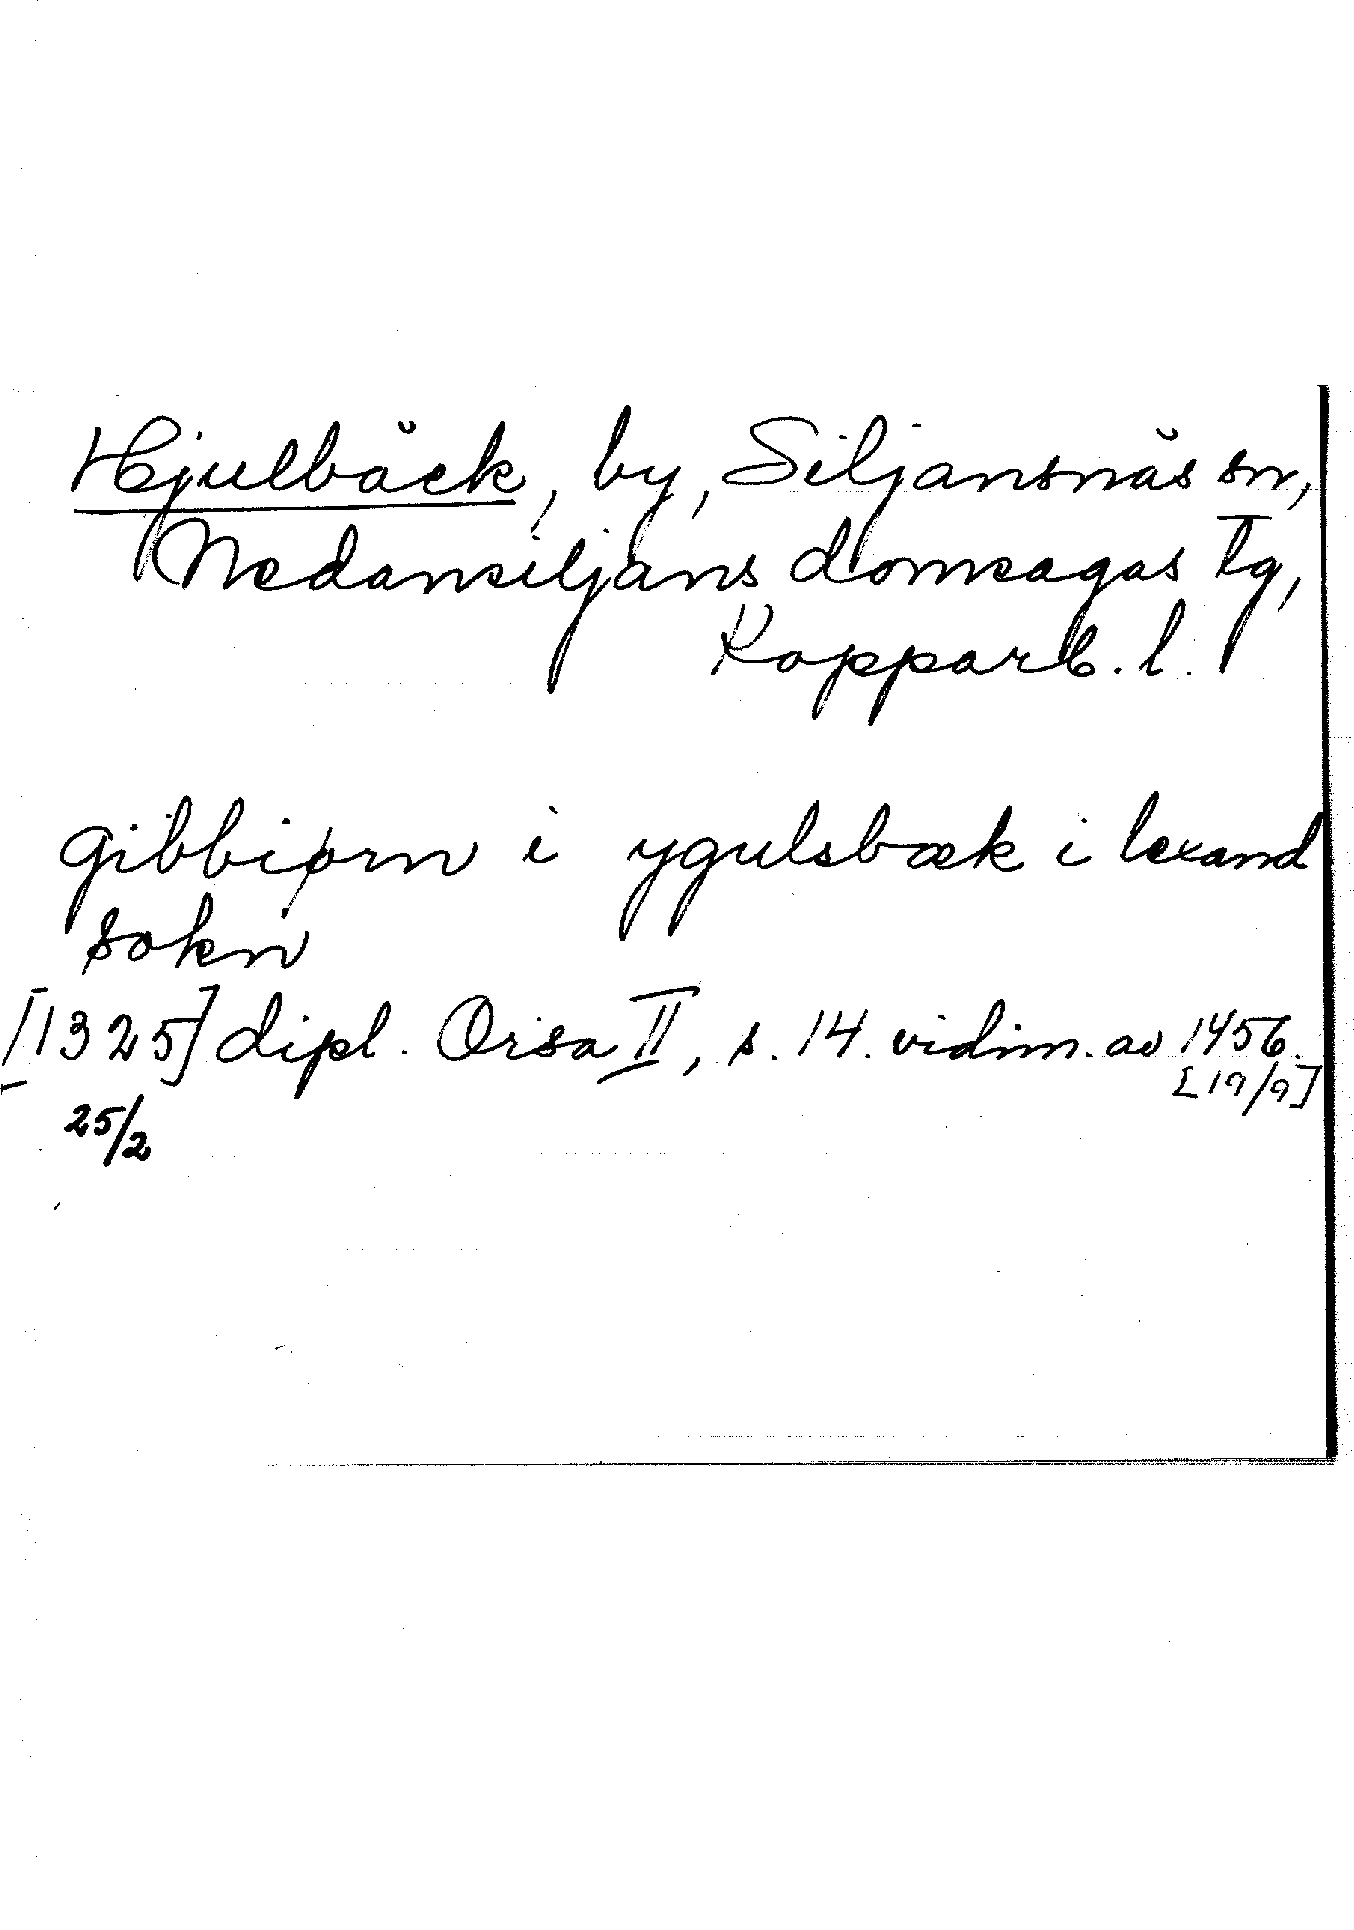 Hjulbäck, by, Siljansnäs sn,
Nedansiljans domsagas tg,
Kopparb. l.
gibbiørn i ygulsbæk i lexand
sokn
[1325] dipl. Orsa II, s. 14. vidim. av 1456.
[19/9]
25/2